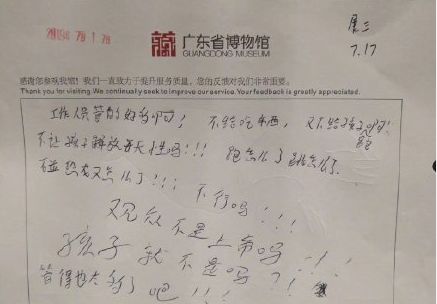 展三
7.17
广东省博物馆
GUANGDONG MUSEUM
感谢您参观我馆！我们一直致力于提升服务质量，您的反馈对我们非常重要。
Thank you for visiting. We continually seek to improve our service. Your feedback is greatly appreciated.
工作人员管的好多啊！不给吃东西，又不给孩子跑啊！
不让孩子解放天性吗！！！跑怎么了跳怎么了
碰热衣又怎么了！！！
不行吗！！！
观众不是上帝吗！！！
孩子就不是吗？！！！
管得也太多了吧！！！